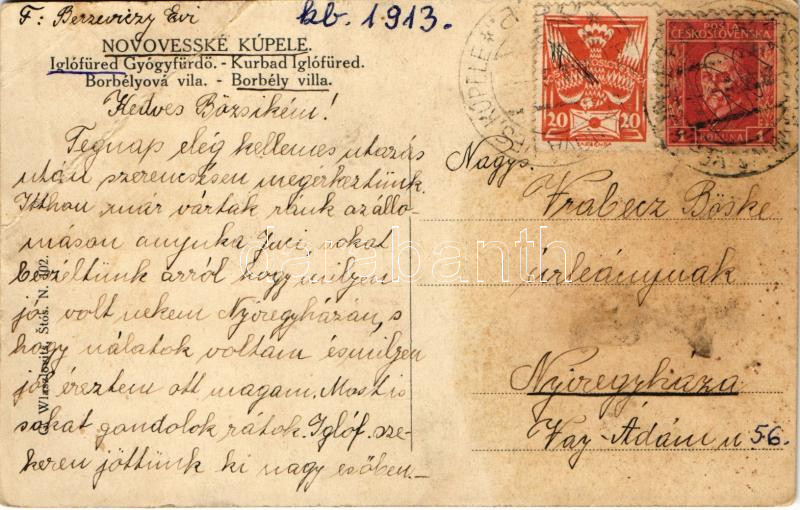 F: Berzeviczy Evi
kb. 1913.
NOVOVESSKÉ KÚPELE.
Iglófüred Gyógyfürdő. - Kurbad Iglófüred.
Borbélyová vila. - Borbély villa.
POSTA
ČESKOSLOVENSKÁ
20 20
1 KORUNA 1
Kedves Bözsikém!
Tegnap elég kellemes utazás
után szerencsésen megérkeztünk.
Itthon már vártak ránk az állo-
máson anyuka Juci, sokat
beszéltünk arról hogy milyen
jó volt nekem Nyíregyházán, s
hogy nálatok voltam és milyen
jó éreztem ott magam. Most is
sokat gondolok rátok. Iglóf. sze-
keren jöttünk ki nagy esőben.-
G. Wlaszlovits, Štós. N. 302.
Nagys.
Vrabecz Böske
úrleánynak
Nyíregyháza
Vay-Ádám u 56.
darabanth